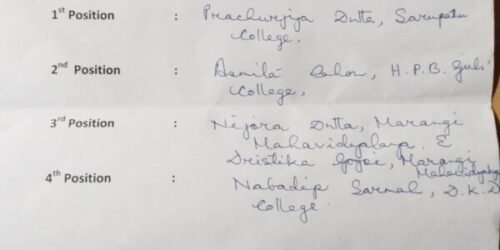 1st Position : Prachurjya Dutta, Sarupathar
College.
2nd Position : Asmita Gohon, H.P.B. Girls'
College.
3rd Position : Nijora Dutta, Marangi
Mahavidyalaya. &
Dristika Gogoi, Marangi
Mahavidyalaya
4th Position : Nabadip Sarmah, D.K.D
College.